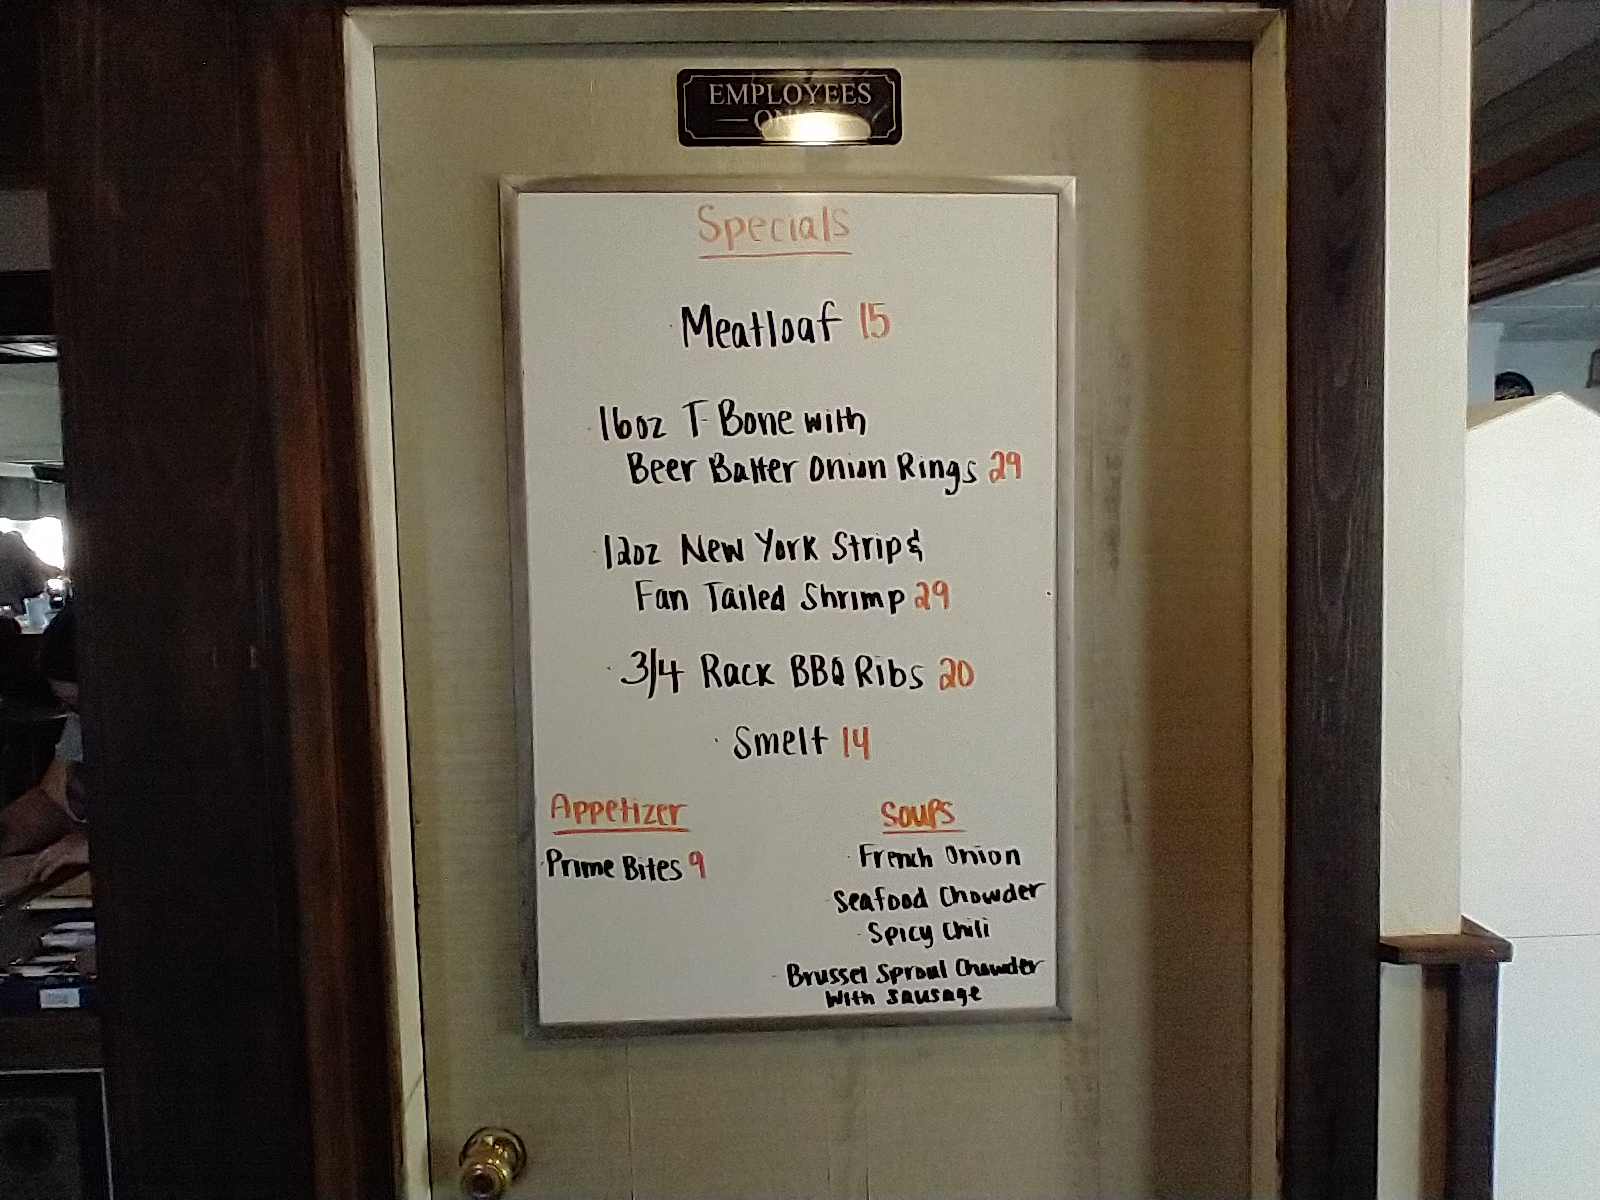 EMPLOYEES
ONLY
Specials
Meatloaf 15
16oz T-Bone with
Beer Batter Onion Rings 29
12oz New York Strip &
Fan Tailed Shrimp 29
3/4 Rack BBQ Ribs 20
Smelt 14
Appetizer
Prime Bites 9
Soups
French Onion
Seafood Chowder
Spicy Chili
Brussel Sprout Chowder
with sausage